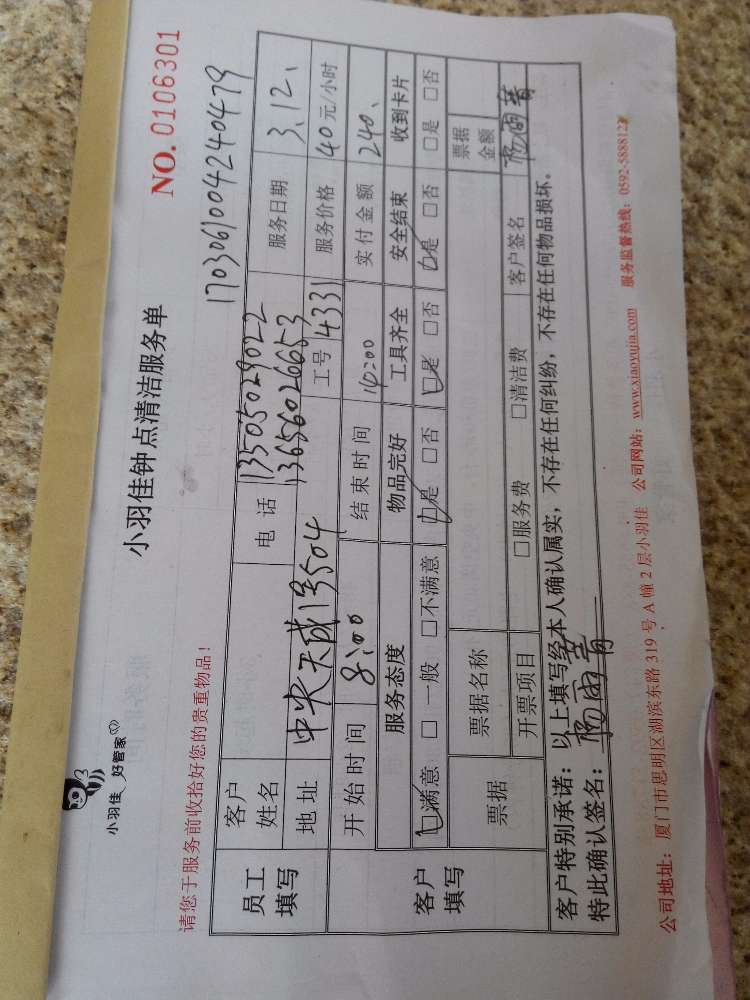 小羽佳 好管家
小羽佳钟点清洁服务单
NO. 0106301
请您于服务前收拾好您的贵重物品!
1703061004240479
员工填写
客户姓名
电话
13505029022
13656026653
服务日期
3.12.
地址
中央天成1号504
工号
4331
服务价格
40元/小时
开始时间
8:00
结束时间
14:00
实付金额
240.
客户填写
服务态度
物品完好
工具齐全
安全结束
收到卡片
□满意 □一般 □不满意
□是 □否
□是 □否
□是 □否
□是 □否
票据
票据名称
票据金额
开票项目
□服务费 □清洁费
客户签名
杨雨青
客户特别承诺:以上填写经本人确认属实,不存在任何纠纷,不存在任何物品损坏。
特此确认签名:杨雨青
公司地址:厦门市思明区湖滨东路 319 号 A 幢 2 层小羽佳 公司网站:www.xiaoyujia.com 服务监督热线:0592-5888123